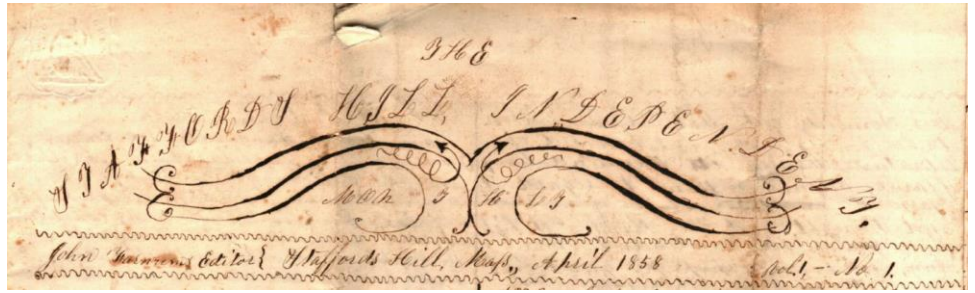 THE
STAFFORDS HILL, INDEPENDENT.
MONTHLY
John Editor} Staffords Hill, Mass, April 1858 Vol. 1, – No 1.